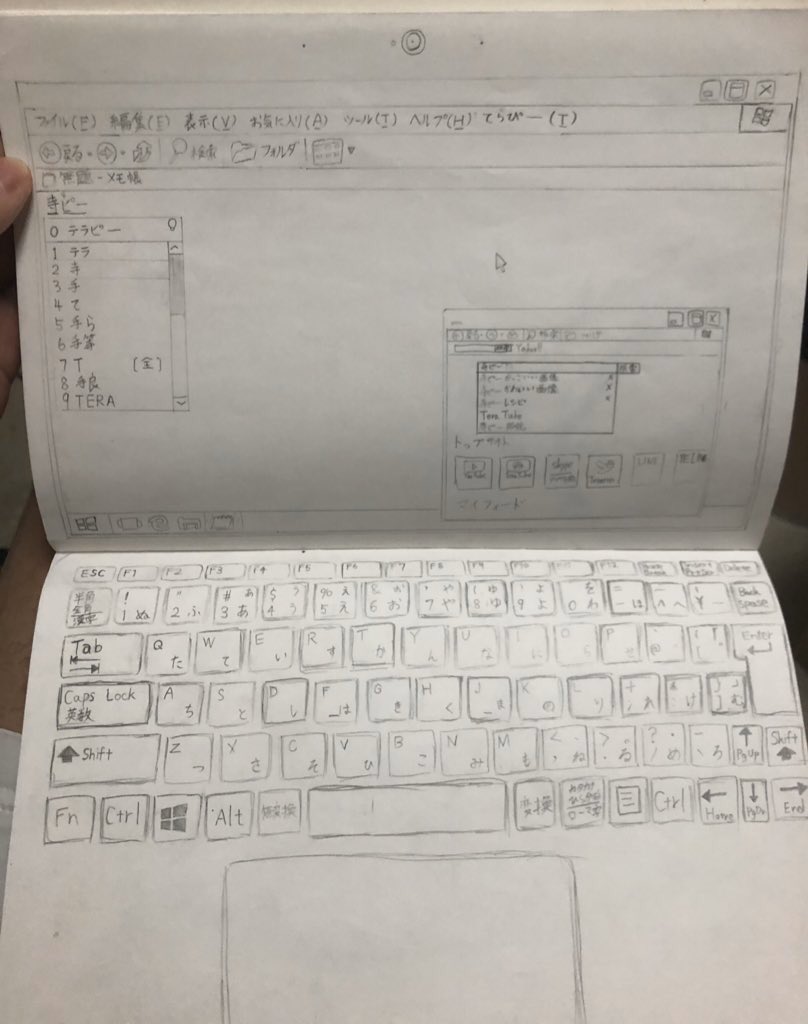 ファイル(F) 編集(E) 表示(V) お気に入り(A) ツール(T) ヘルプ(H) てらぴー(I)
戻る 検索 フォルダ
無題 - メモ帳
寺ピー
0 テラピー
1 テラ
2 寺
3 手
4 て
5 手ら
6 手等
7 T (全)
8 手良
9 TERA
戻る 検索
Yahoo!!
寺ピー 検索
かっこいい画像 x
かわいい画像 x
レシピ x
Tera Tube
トップサイト
skype
LINE
マイフィード
ESC F1 F2 F3 F4 F5 F6 F7 F8 F9 F10 F12 Delete
半角 ! " # ぁ $ ぅ % ぇ & ぉ ' ゃ ( ゅ ) ょ を = Back
全角 1 ぬ 2 ふ 3 あ 4 う 5 え 6 お 7 や 8 ゆ 9 よ 0 わ - ほ ^ へ ¥ ー Spase
漢字
Tab Q た W て E い R す T か Y ん U な I に O ら P せ @ [ Enter
Caps Lock A ち S と D し F は G き H く J ま K の L り + ; れ * : け } 」 ] む
英数
Shift Z つ X さ C そ V ひ B こ N み M も < 、 , ね > 。 . る ? ・ / め \ ろ PgUp Shift
Fn Ctrl Alt 無変換 変換 カタカナ Ctrl Home PgDn End
ひらがな
ローマ字